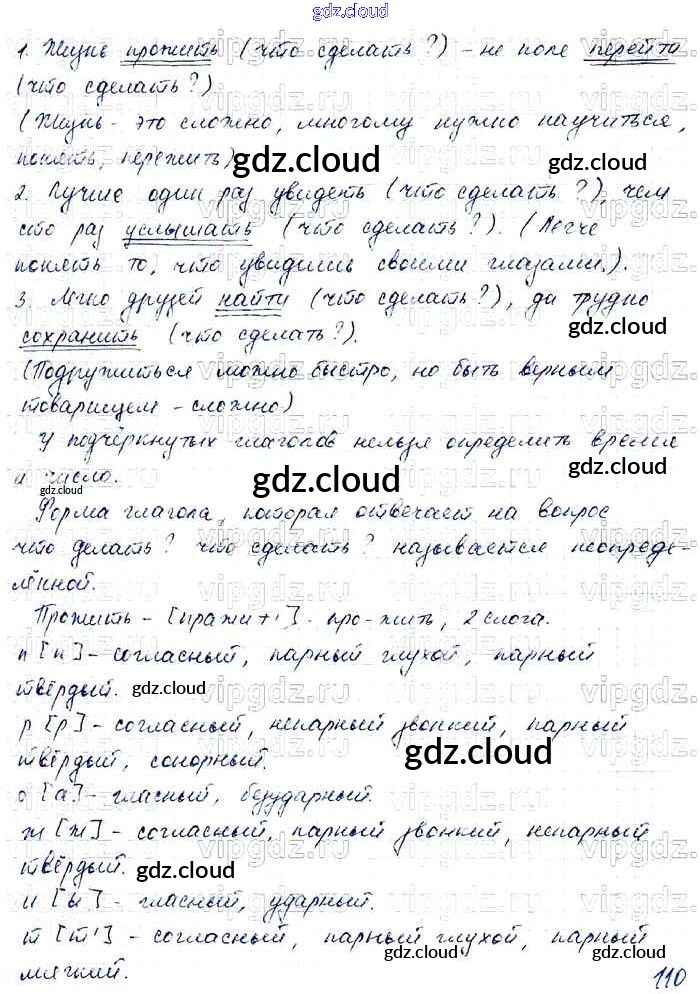 gdz.cloud
1. Жизнь прожить (что сделать?) - не поле перейти
(что сделать?)
(Жизнь - это сложно, многому нужно научиться,
понять, пережить)
gdz.cloud
2. Лучше один раз увидеть (что сделать?), чем
сто раз услышать (что сделать?). (Легче
понять то, что увидишь своими глазами.).
3. Легко друзей найти (что сделать?), да трудно
gdz.cloud
сохранить (что сделать?).
(Подружиться можно быстро, но быть верным
товарищем - сложно)
У подчёркнутых глаголов нельзя определить время
и число.
gdz.cloud
gdz.cloud
Форма глагола, которая отвечает на вопрос
что делать? что сделать? называется неопреде-
лённой.
Прожить - [пражит']. про-жить, 2 слога.
п [п] - согласный, парный глухой, парный
твёрдый.
gdz.cloud
р [р] - согласный, непарный звонкий, парный
твёрдый, сонорный.
gdz.cloud
о [а] - гласный, безударный.
ж [ж] - согласный, парный звонкий, непарный
твёрдый.
gdz.cloud
и [ы] - гласный, ударный.
т [т'] - согласный, парный глухой, парный
мягкий.
gdz.cloud
110
vipgdz.ru